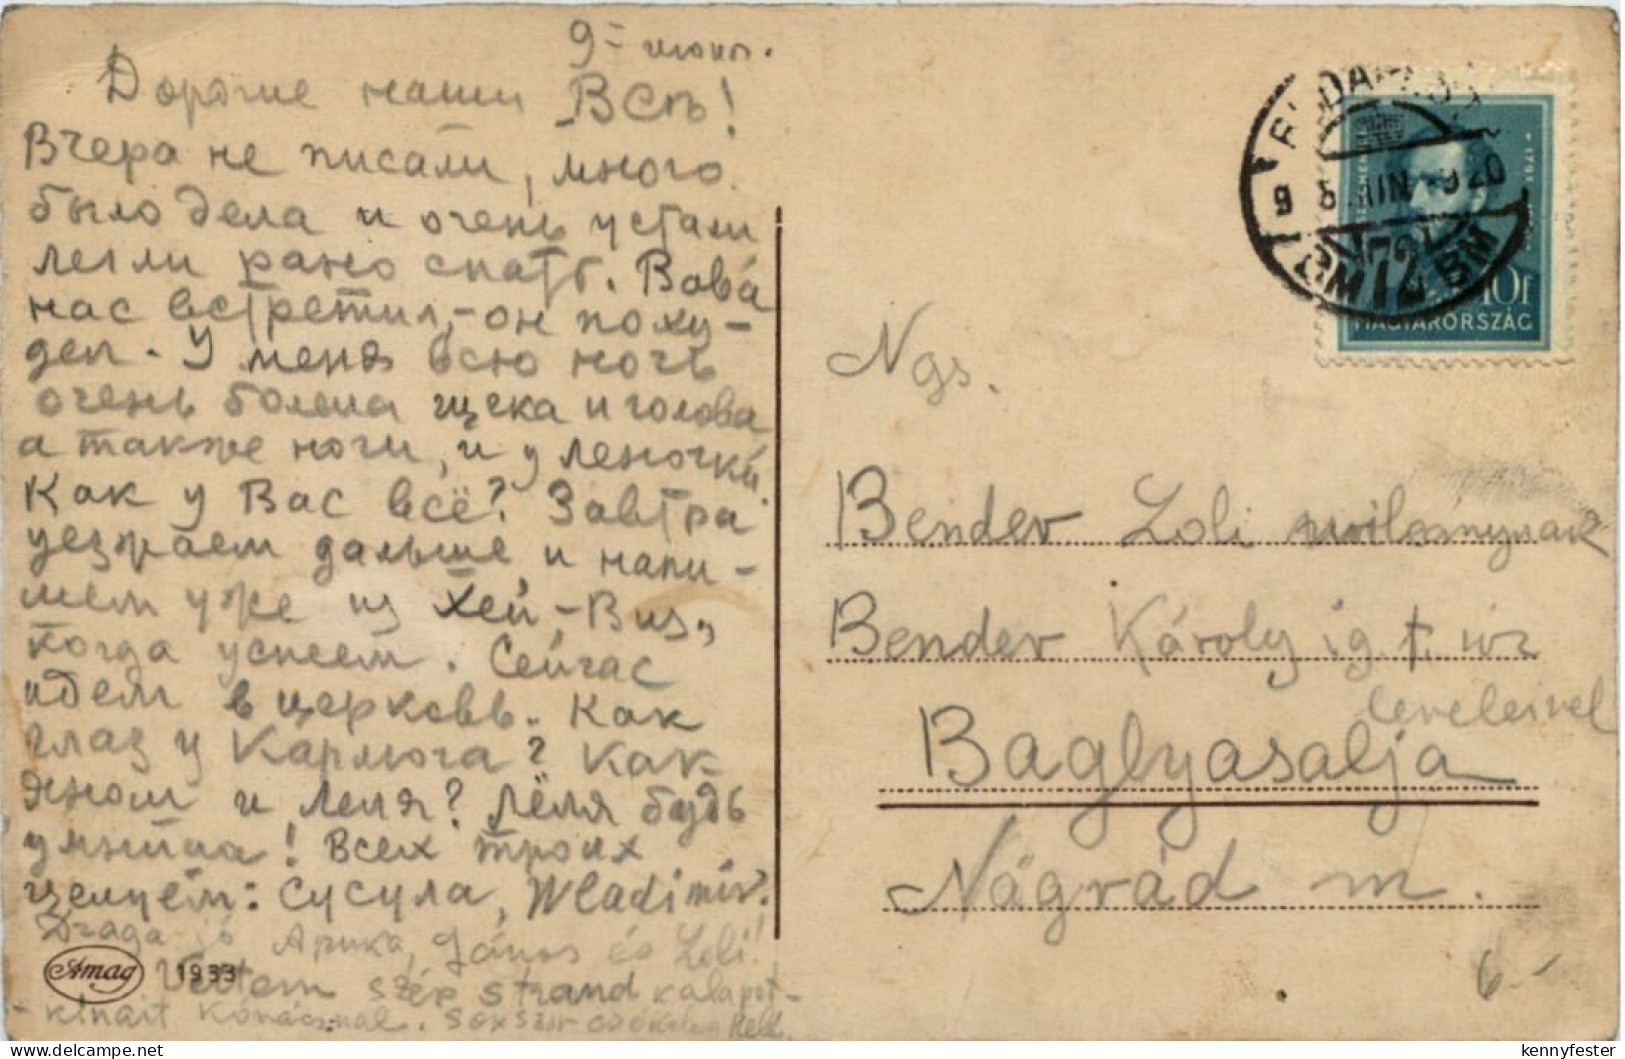 9= июня.
Дорогие наши Всѣ!
Вчера не писали, много
было дела и очень устали
легли рано спать. Вова
нас встретил, - он поху-
дел. У меня всю ночь
очень болела щека и голова
а также ноги, и у Леночки.
Как у Вас всё? Завтра
уезжаем дальше и напи-
шем уже из Хей-Виз,
когда успеем. Сейчас
идем в церковь. Как
глаз у Карлюга? Как
Яном и Леля? Лёля будь
умница! Всех троих
целуем: Сусула, Wladimir.
Draga jó Apuka, János és Loli!
Vettem szép strand kalapot-
Amag 1933
BUDAPEST 72
BM BM
MAGYARORSZÁG
10f
Ngs.
Bender Loli
Bender Károly ig. t. úr
leveleivel
Baglyasalja
Nógrád m.
6.-
kennyfester